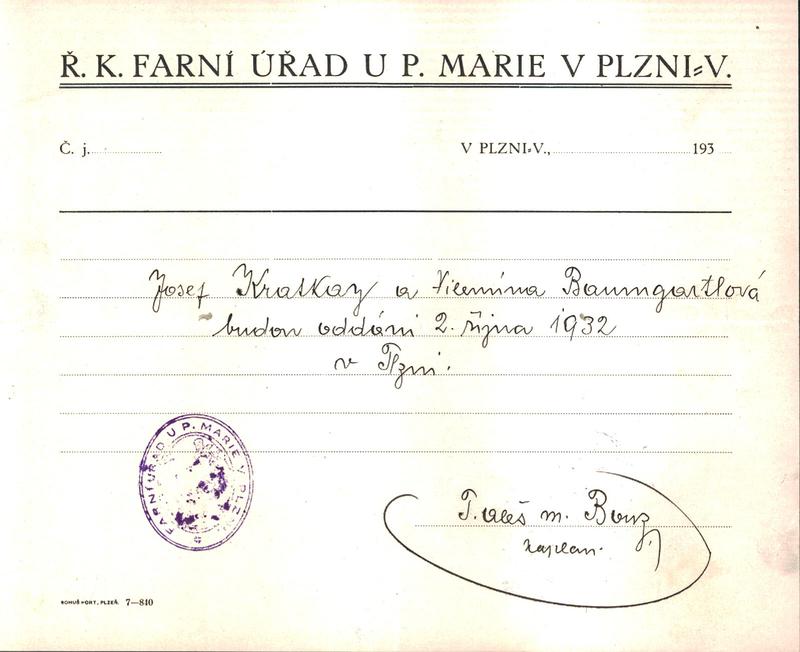 Ř. K. FARNÍ ÚŘAD U P. MARIE V PLZNI-V.
Č. j.
V PLZNI-V., 193
Josef Kratkay a Vilemína Baumgartlová
budou oddáni 2. října 1932
v Plzni.
FARNÍ ÚŘAD U P. MARIE V PLZNI
P. Aleš m.
kaplan.
PLZEŇ. 7—840